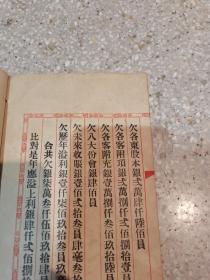 欠各東股本銀弍萬肆仟陸佰員
欠各客附項銀弍萬捌仟弍佰捌拾
欠各客附充銀壹萬捌仟捌佰玖拾
欠八大份會銀肆佰員
欠未來收賬銀壹佰弍拾叁員肆毫叁
欠歷年溢利銀壹仟柒佰玖拾叁員玖
合共欠銀柒萬叁仟伍佰玖拾
比對是年應溢上利銀肆仟弍佰捌